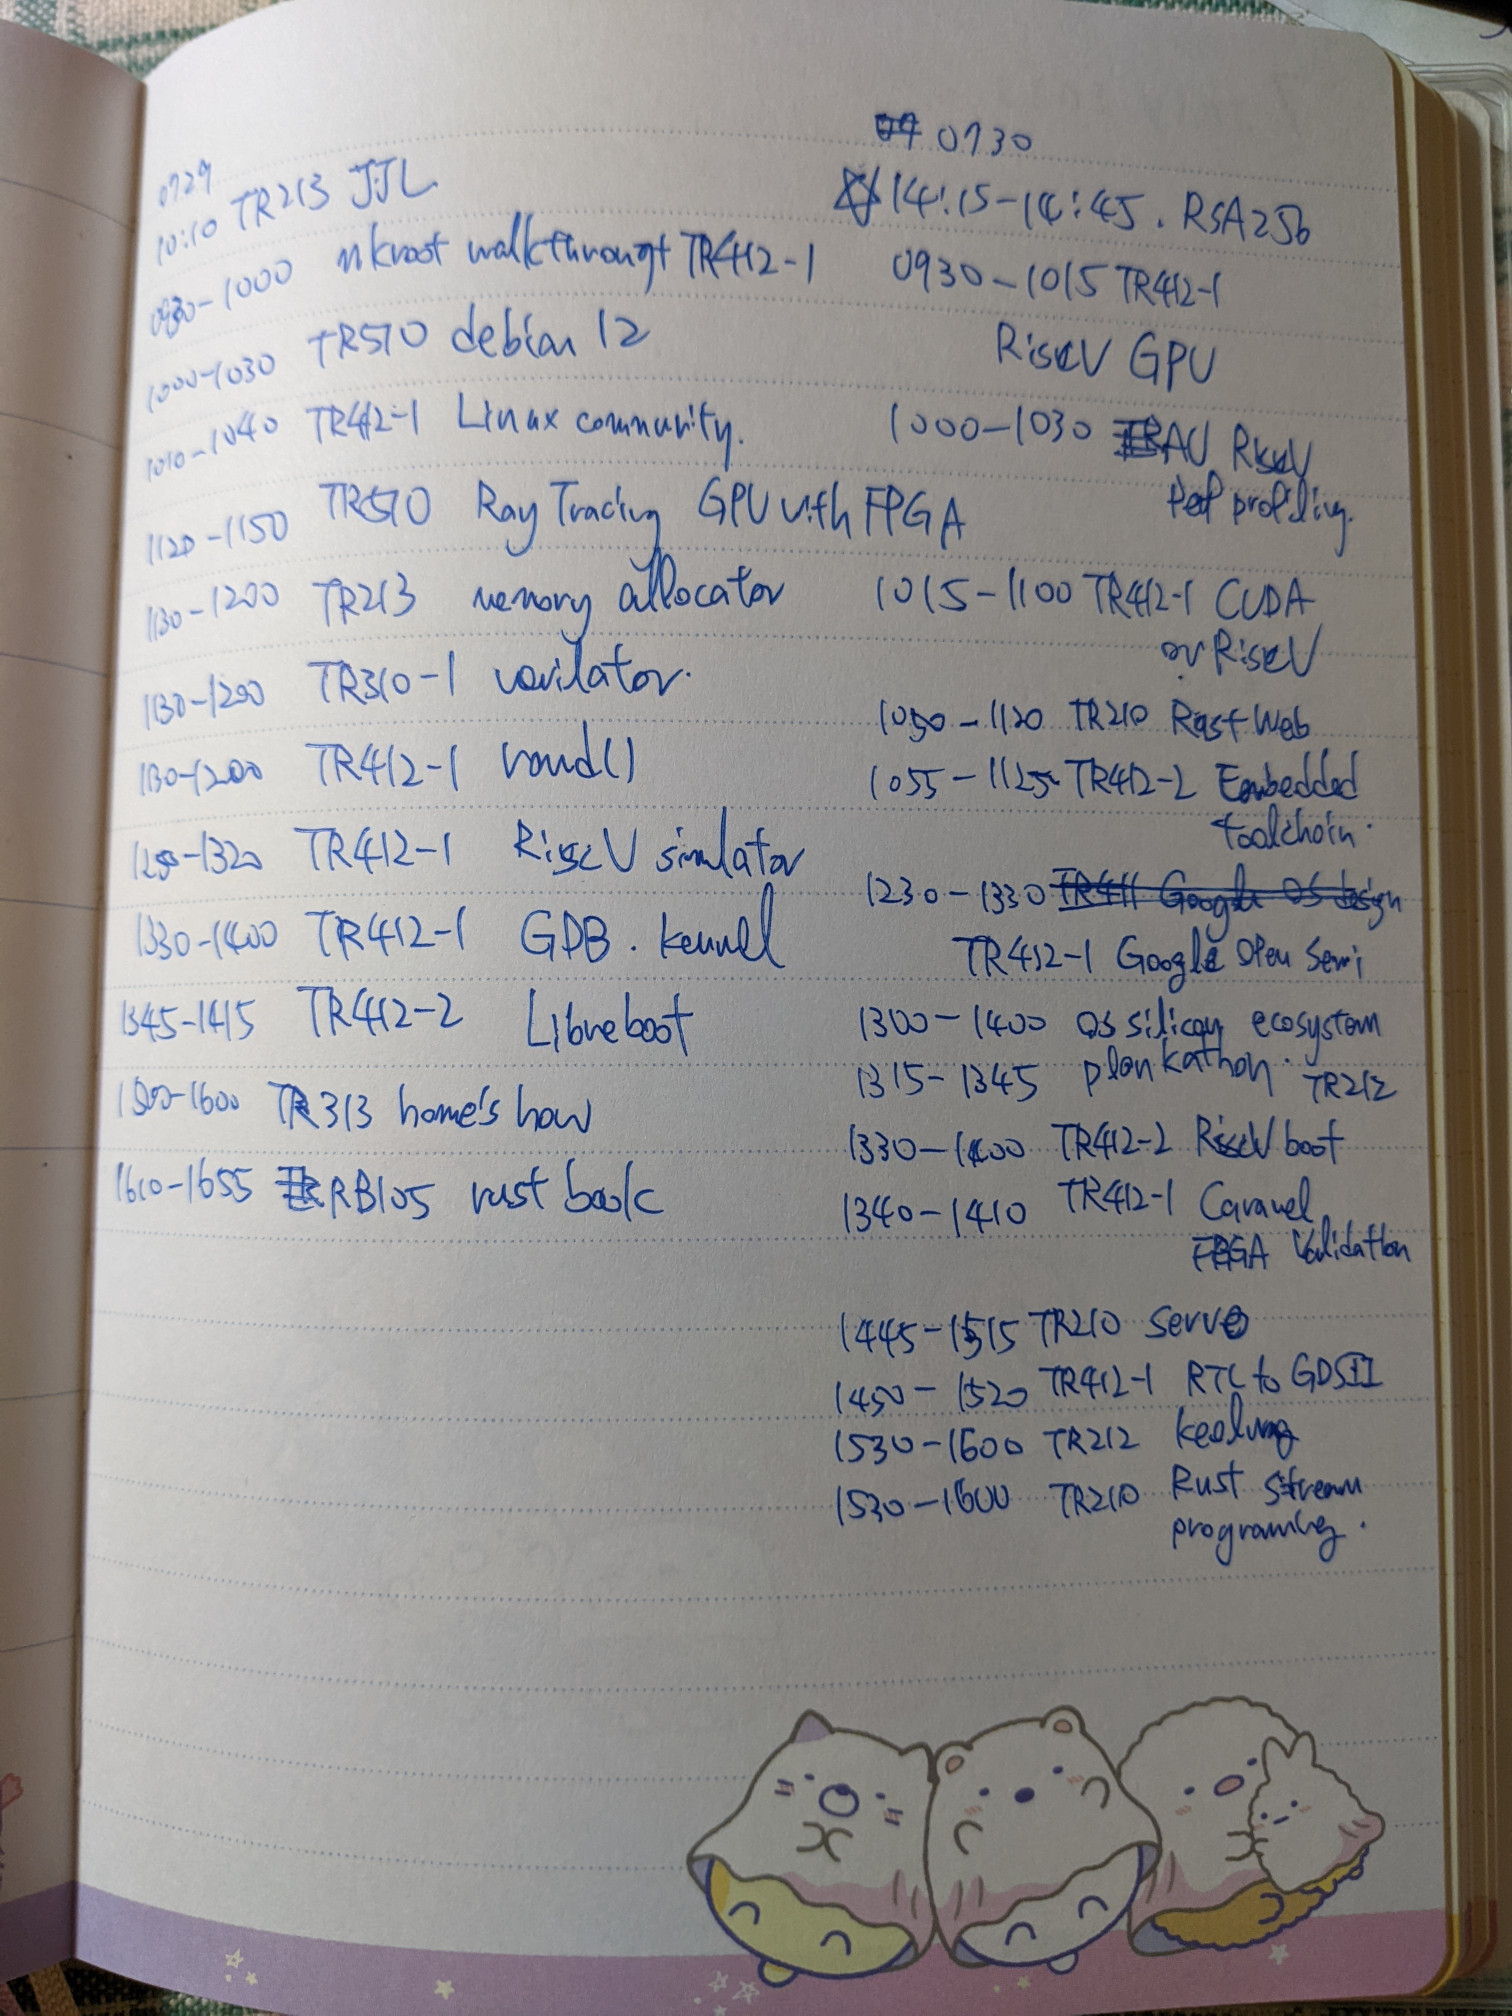 0729
10:10 TR213 JJL
0930-1000 nkroot walkthrought TR412-1
1000-1030 TR510 debian 12
1010-1040 TR412-1 Linux community.
1120-1150 TR510 Ray Tracing GPU with FPGA
1130-1200 TR213 memory allocator
1130-1200 TR310-1 verilator.
1130-1200 TR412-1 rand()
1250-1320 TR412-1 RiscV simulator
1330-1400 TR412-1 GDB. kernel
1345-1415 TR412-2 Libreboot
1500-1600 TR313 home's how
1610-1655 RB105 rust book
0730
14:15-14:45. RSA256
0930-1015 TR412-1
RiscV GPU
1000-1030 AU RiscV
Perf profiling.
1015-1100 TR412-1 CUDA
on RiscV
1050-1120 TR210 Rust Web
1055-1125 TR412-2 Embedded
toolchain.
1230-1330 TR411 Google OS design
TR412-1 Google Open Semi
1300-1400 OS silicon ecosystem
1315-1345 plonkathon. TR212
1330-1400 TR412-2 RiscV boot
1340-1410 TR412-1 Caravel
FPGA Validation
1445-1515 TR210 Servo
1450-1520 TR412-1 RTL to GDSII
1530-1600 TR212 keelung
1530-1600 TR210 Rust Stream
programing.